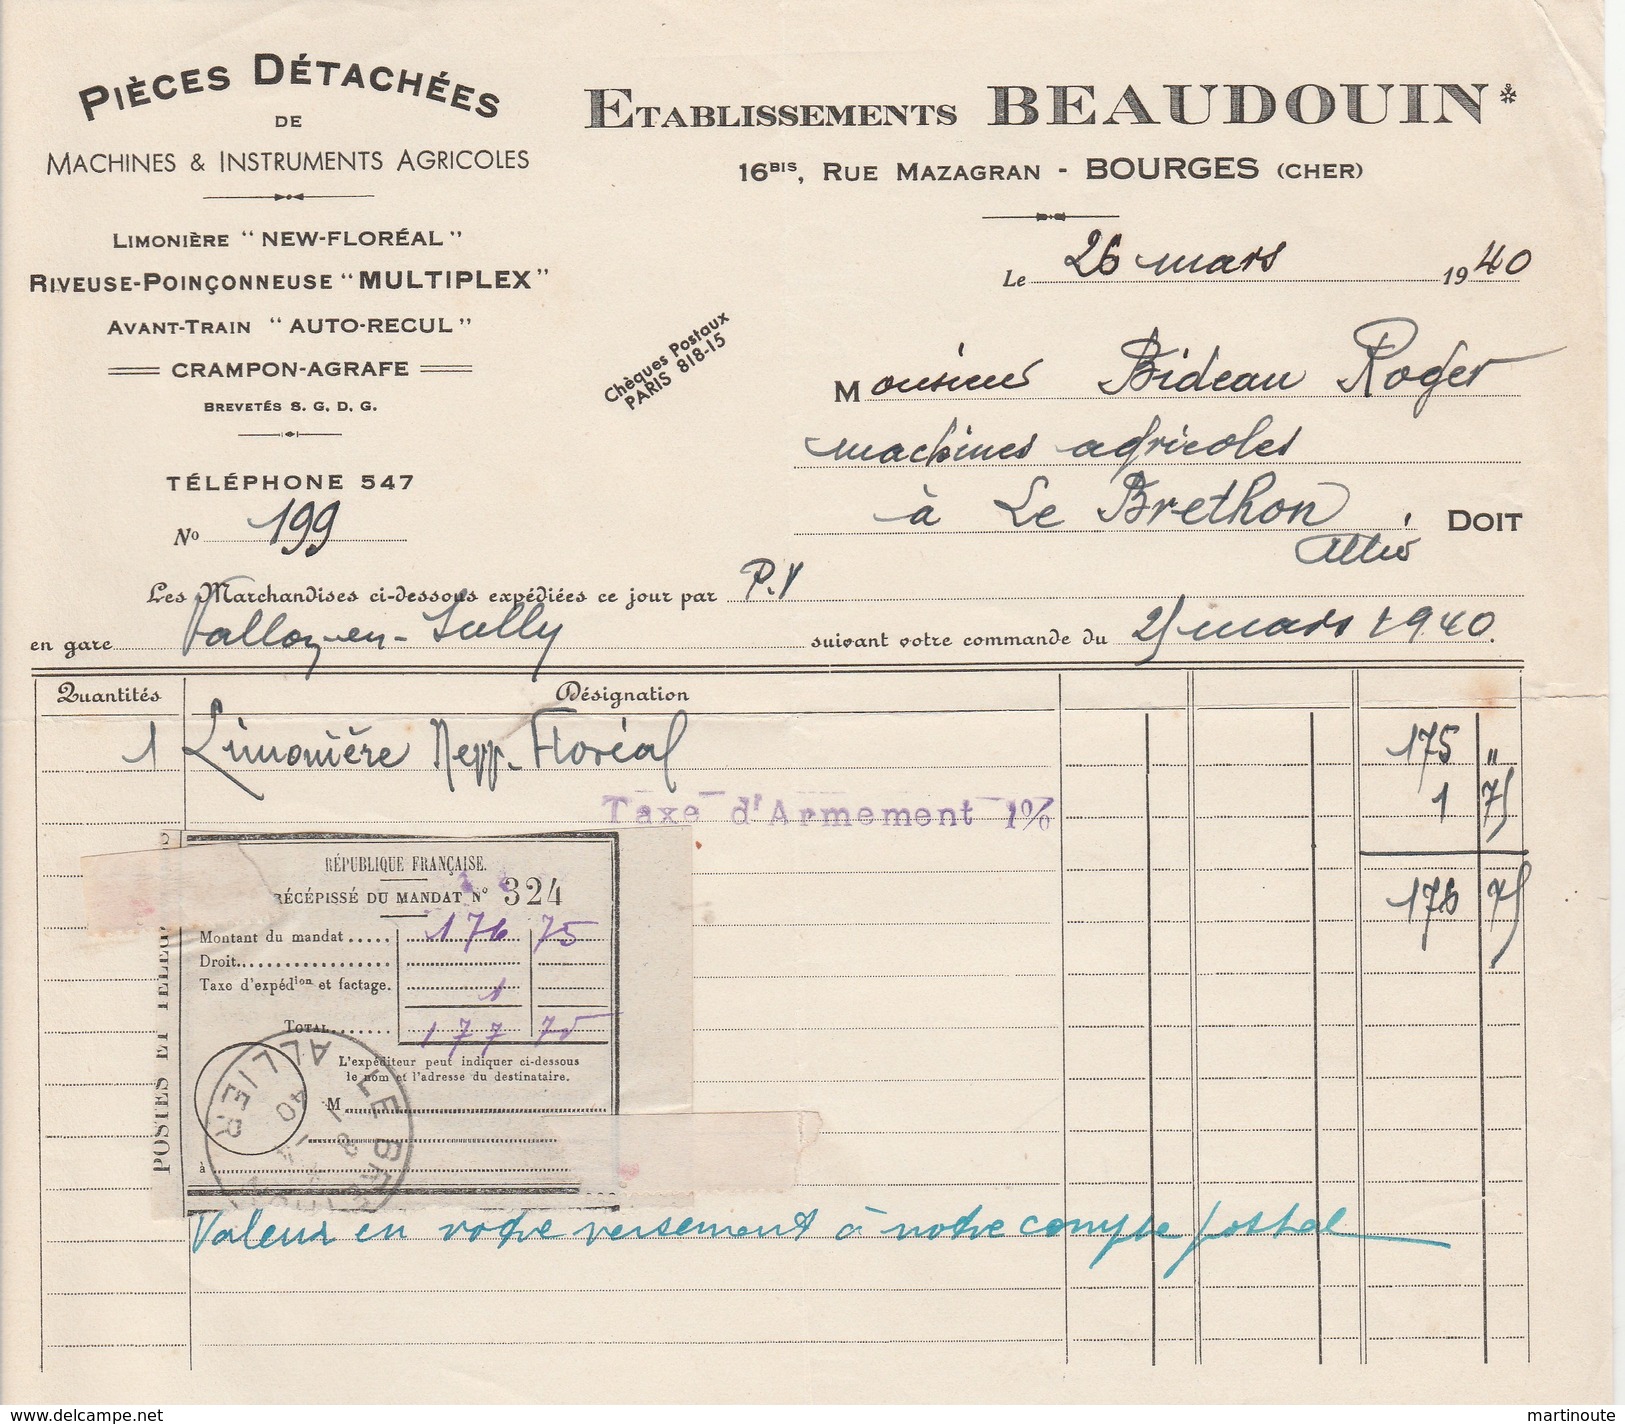 PIÈCES DÉTACHÉES
DE
MACHINES & INSTRUMENTS AGRICOLES
LIMONIÈRE "NEW-FLORÉAL"
RIVEUSE-POINÇONNEUSE "MULTIPLEX"
AVANT-TRAIN "AUTO-RECUL"
CRAMPON-AGRAFE
BREVETÉS S. G. D. G.
TÉLÉPHONE 547
No 199
ETABLISSEMENTS BEAUDOUIN
16BIS, RUE MAZAGRAN - BOURGES (CHER)
Le 26 mars 1940
Chèques Postaux
PARIS 818-15
Monsieur Bideau Roger
machines agricoles
à Le Brethon, DOIT
Allier
Les Marchandises ci-dessous expédiées ce jour par P.V
en gare Vallon-en-Sully suivant votre commande du 21 mars 1940.
Quantités Désignation
1 Limonière New-Floréal 175 "
Taxe d'Armement 1% 1 75
176 75
RÉPUBLIQUE FRANÇAISE.
RÉCÉPISSÉ DU MANDAT No 324
Montant du mandat..... 176 75
Droit..................
Taxe d'expédion et factage. 1
TOTAL....... 177 75
L'expéditeur peut indiquer ci-dessous
le nom et l'adresse du destinataire.
M
à
POSTES ET TÉLÉG
LE BRETHON ALLIER
Valeur en votre versement à notre compte postal
www.delcampe.net
martinoute